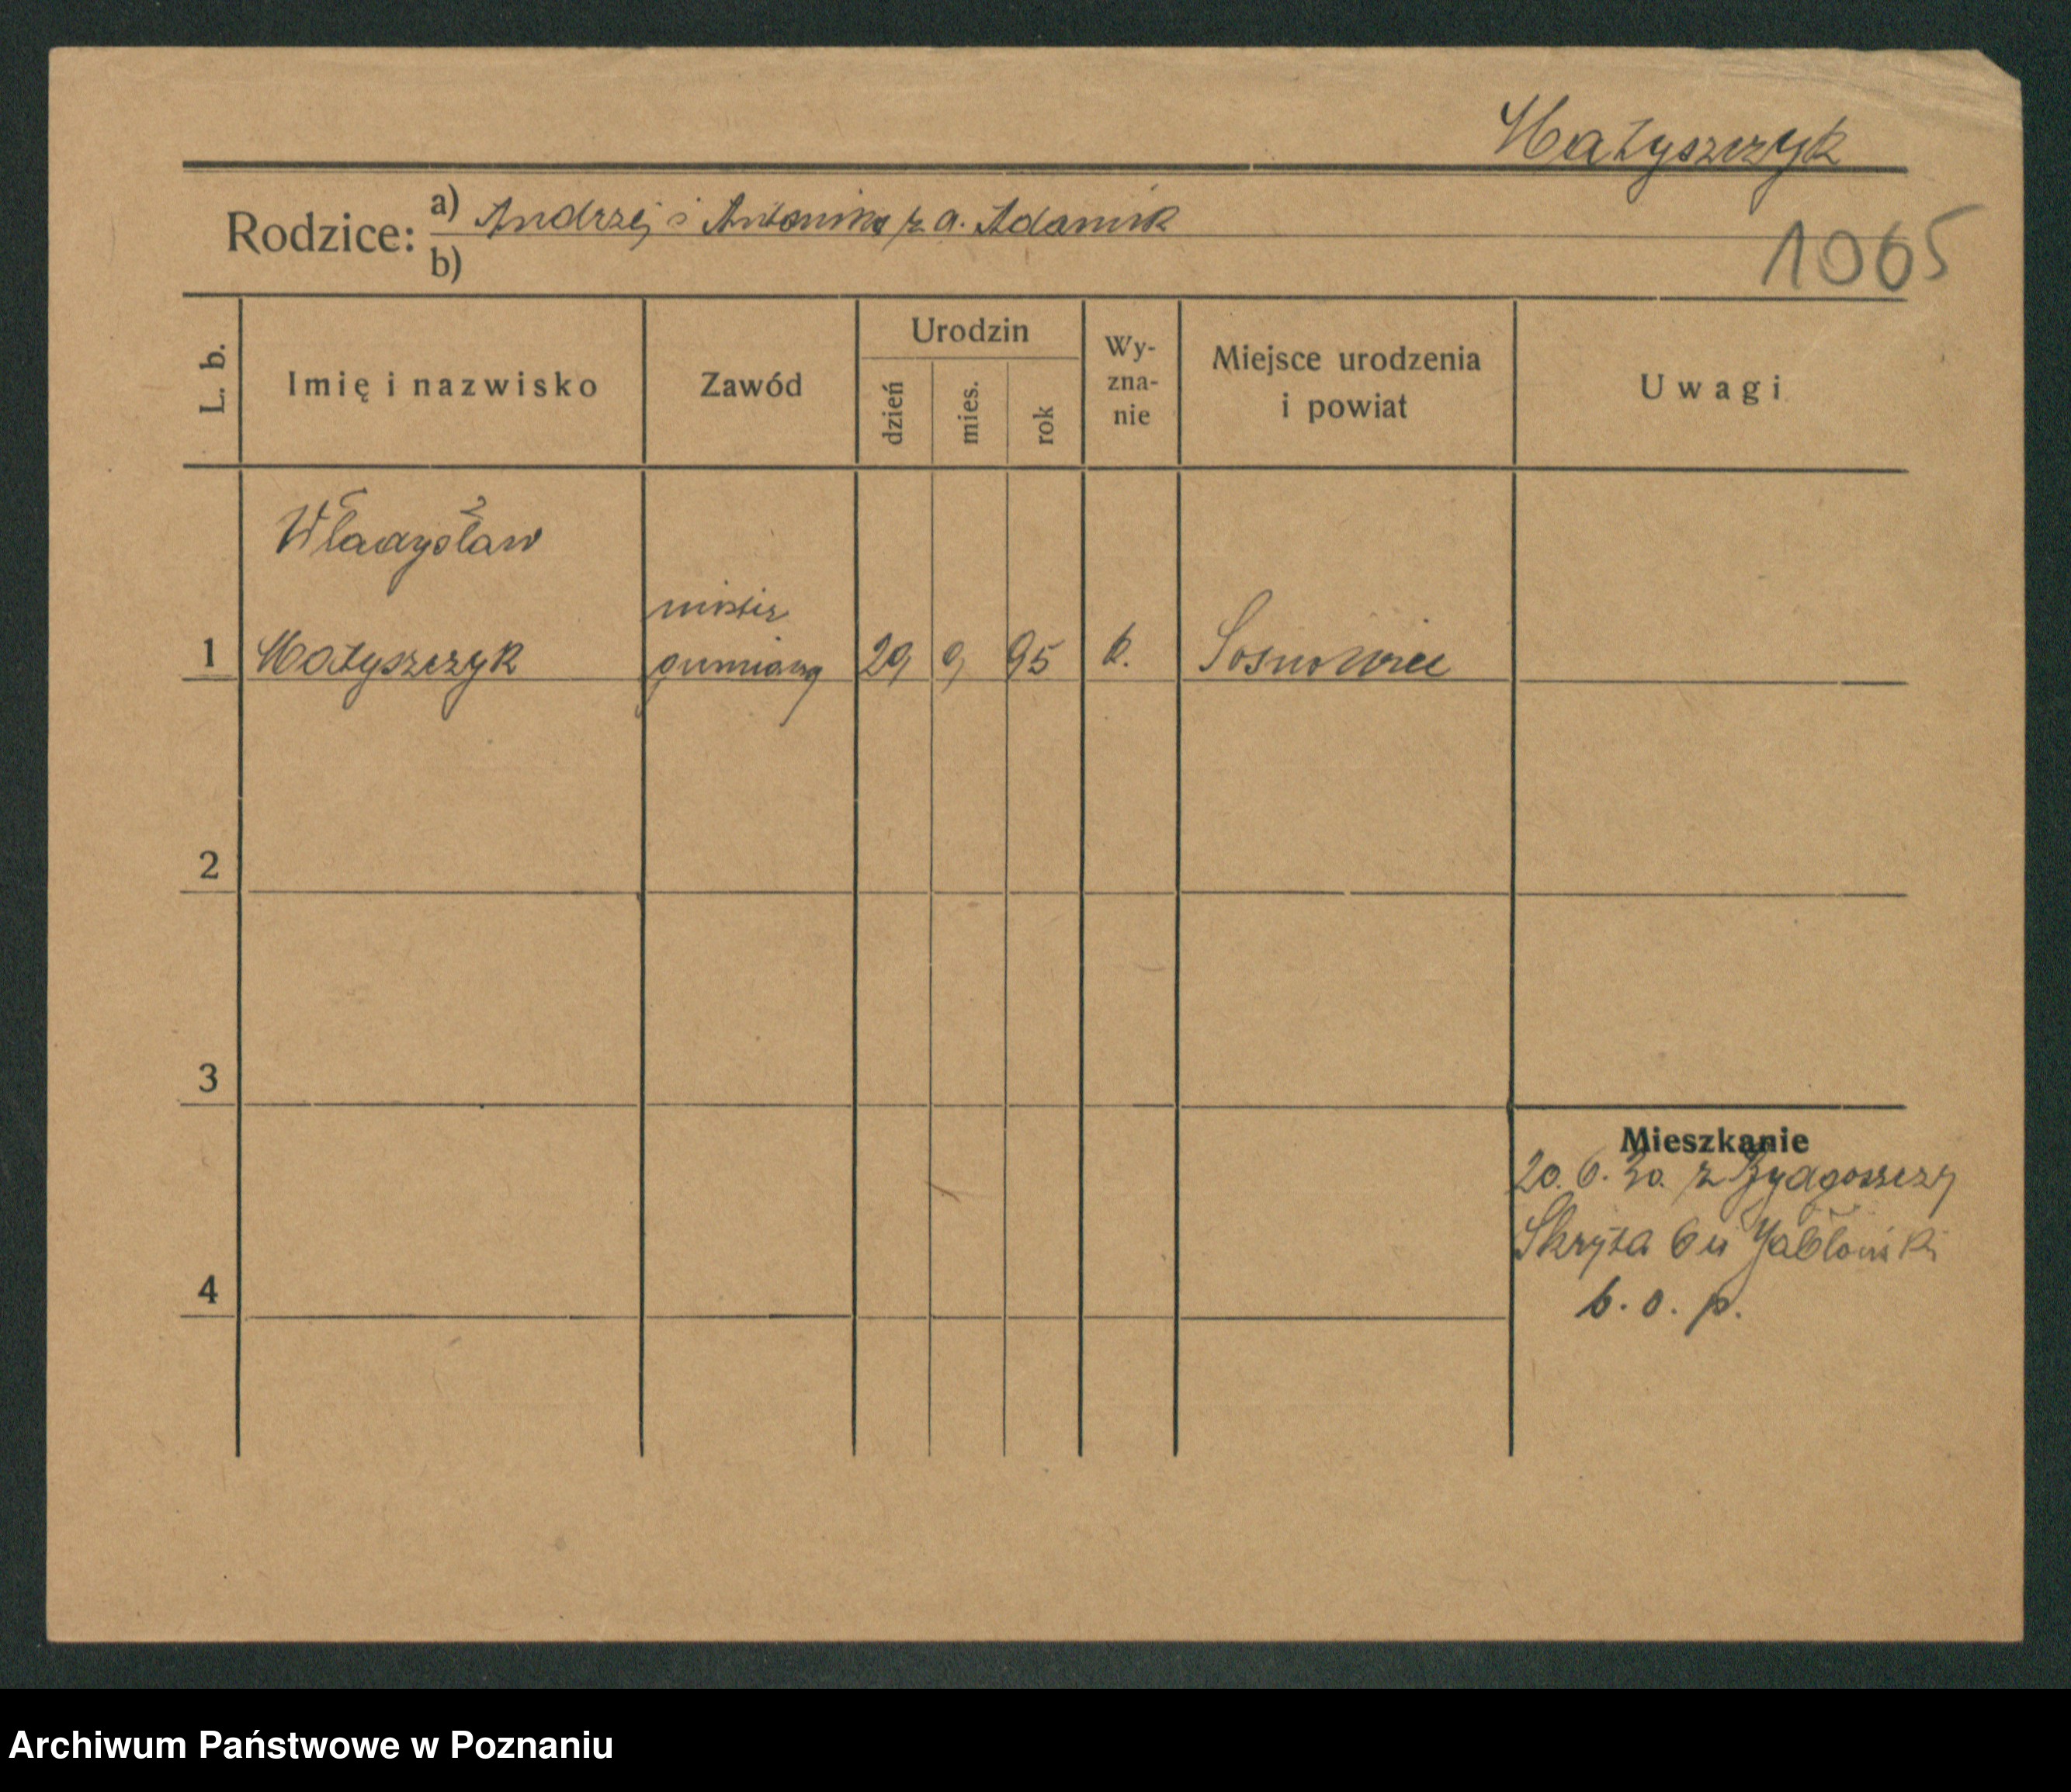 Małyszczyk
Rodzice: a) Andrzej i Antonina z d. Adamik
b)
1065
L. b.
Imię i nazwisko
Zawód
Urodzin
dzień
mies.
rok
Wy-
zna-
nie
Miejsce urodzenia
i powiat
Uwagi
Władysław
mistrz
1 Małyszczyk gumiarz 29 9 95 k. Sosnowiec
2
3
4
Mieszkanie
20. 6. 30. z Bydgoszczy
Skryta 6 u Jabłoński
b. o. p.
Archiwum Państwowe w Poznaniu